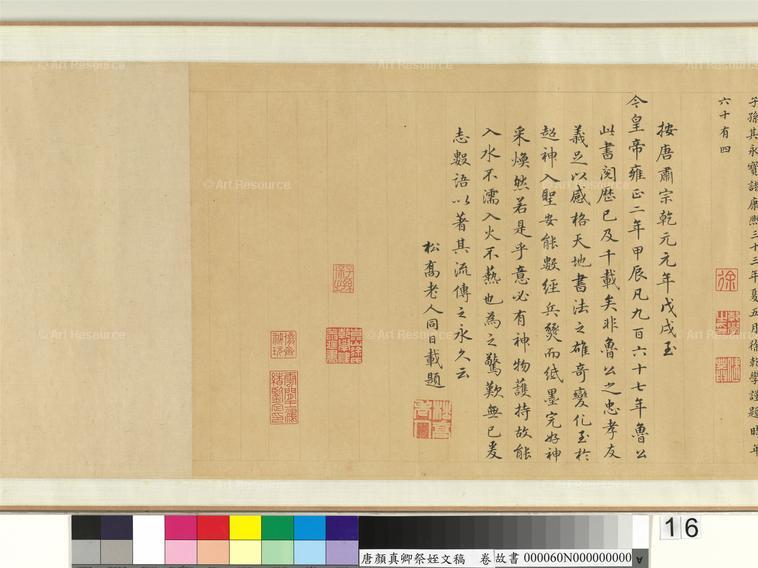 子孫其永寶諸康熙三十三年夏五月徐乾學謹題時年
六十有四
按唐肅宗乾元元年戊戌至
今皇帝雍正二年甲辰凡九百六十七年魯公
此書閱歷已及千載矣非魯公之忠孝友
義足以感格天地書法之雄奇變化至於
超神入聖安能數經兵燹而紙墨完好神
采煥然若是乎意必有神物護持故能
入水不濡入火不爇也為之驚歎無已爰
志數語以著其流傳之永久云
松喬老人同日載題
© Art Resource
© Art Resource
© Art Resource
© Art Resource
© Art Resource
© Art Resource
© Art Resource
© Art Resource
16
唐顏真卿祭姪文稿 卷 故書 000060N000000000